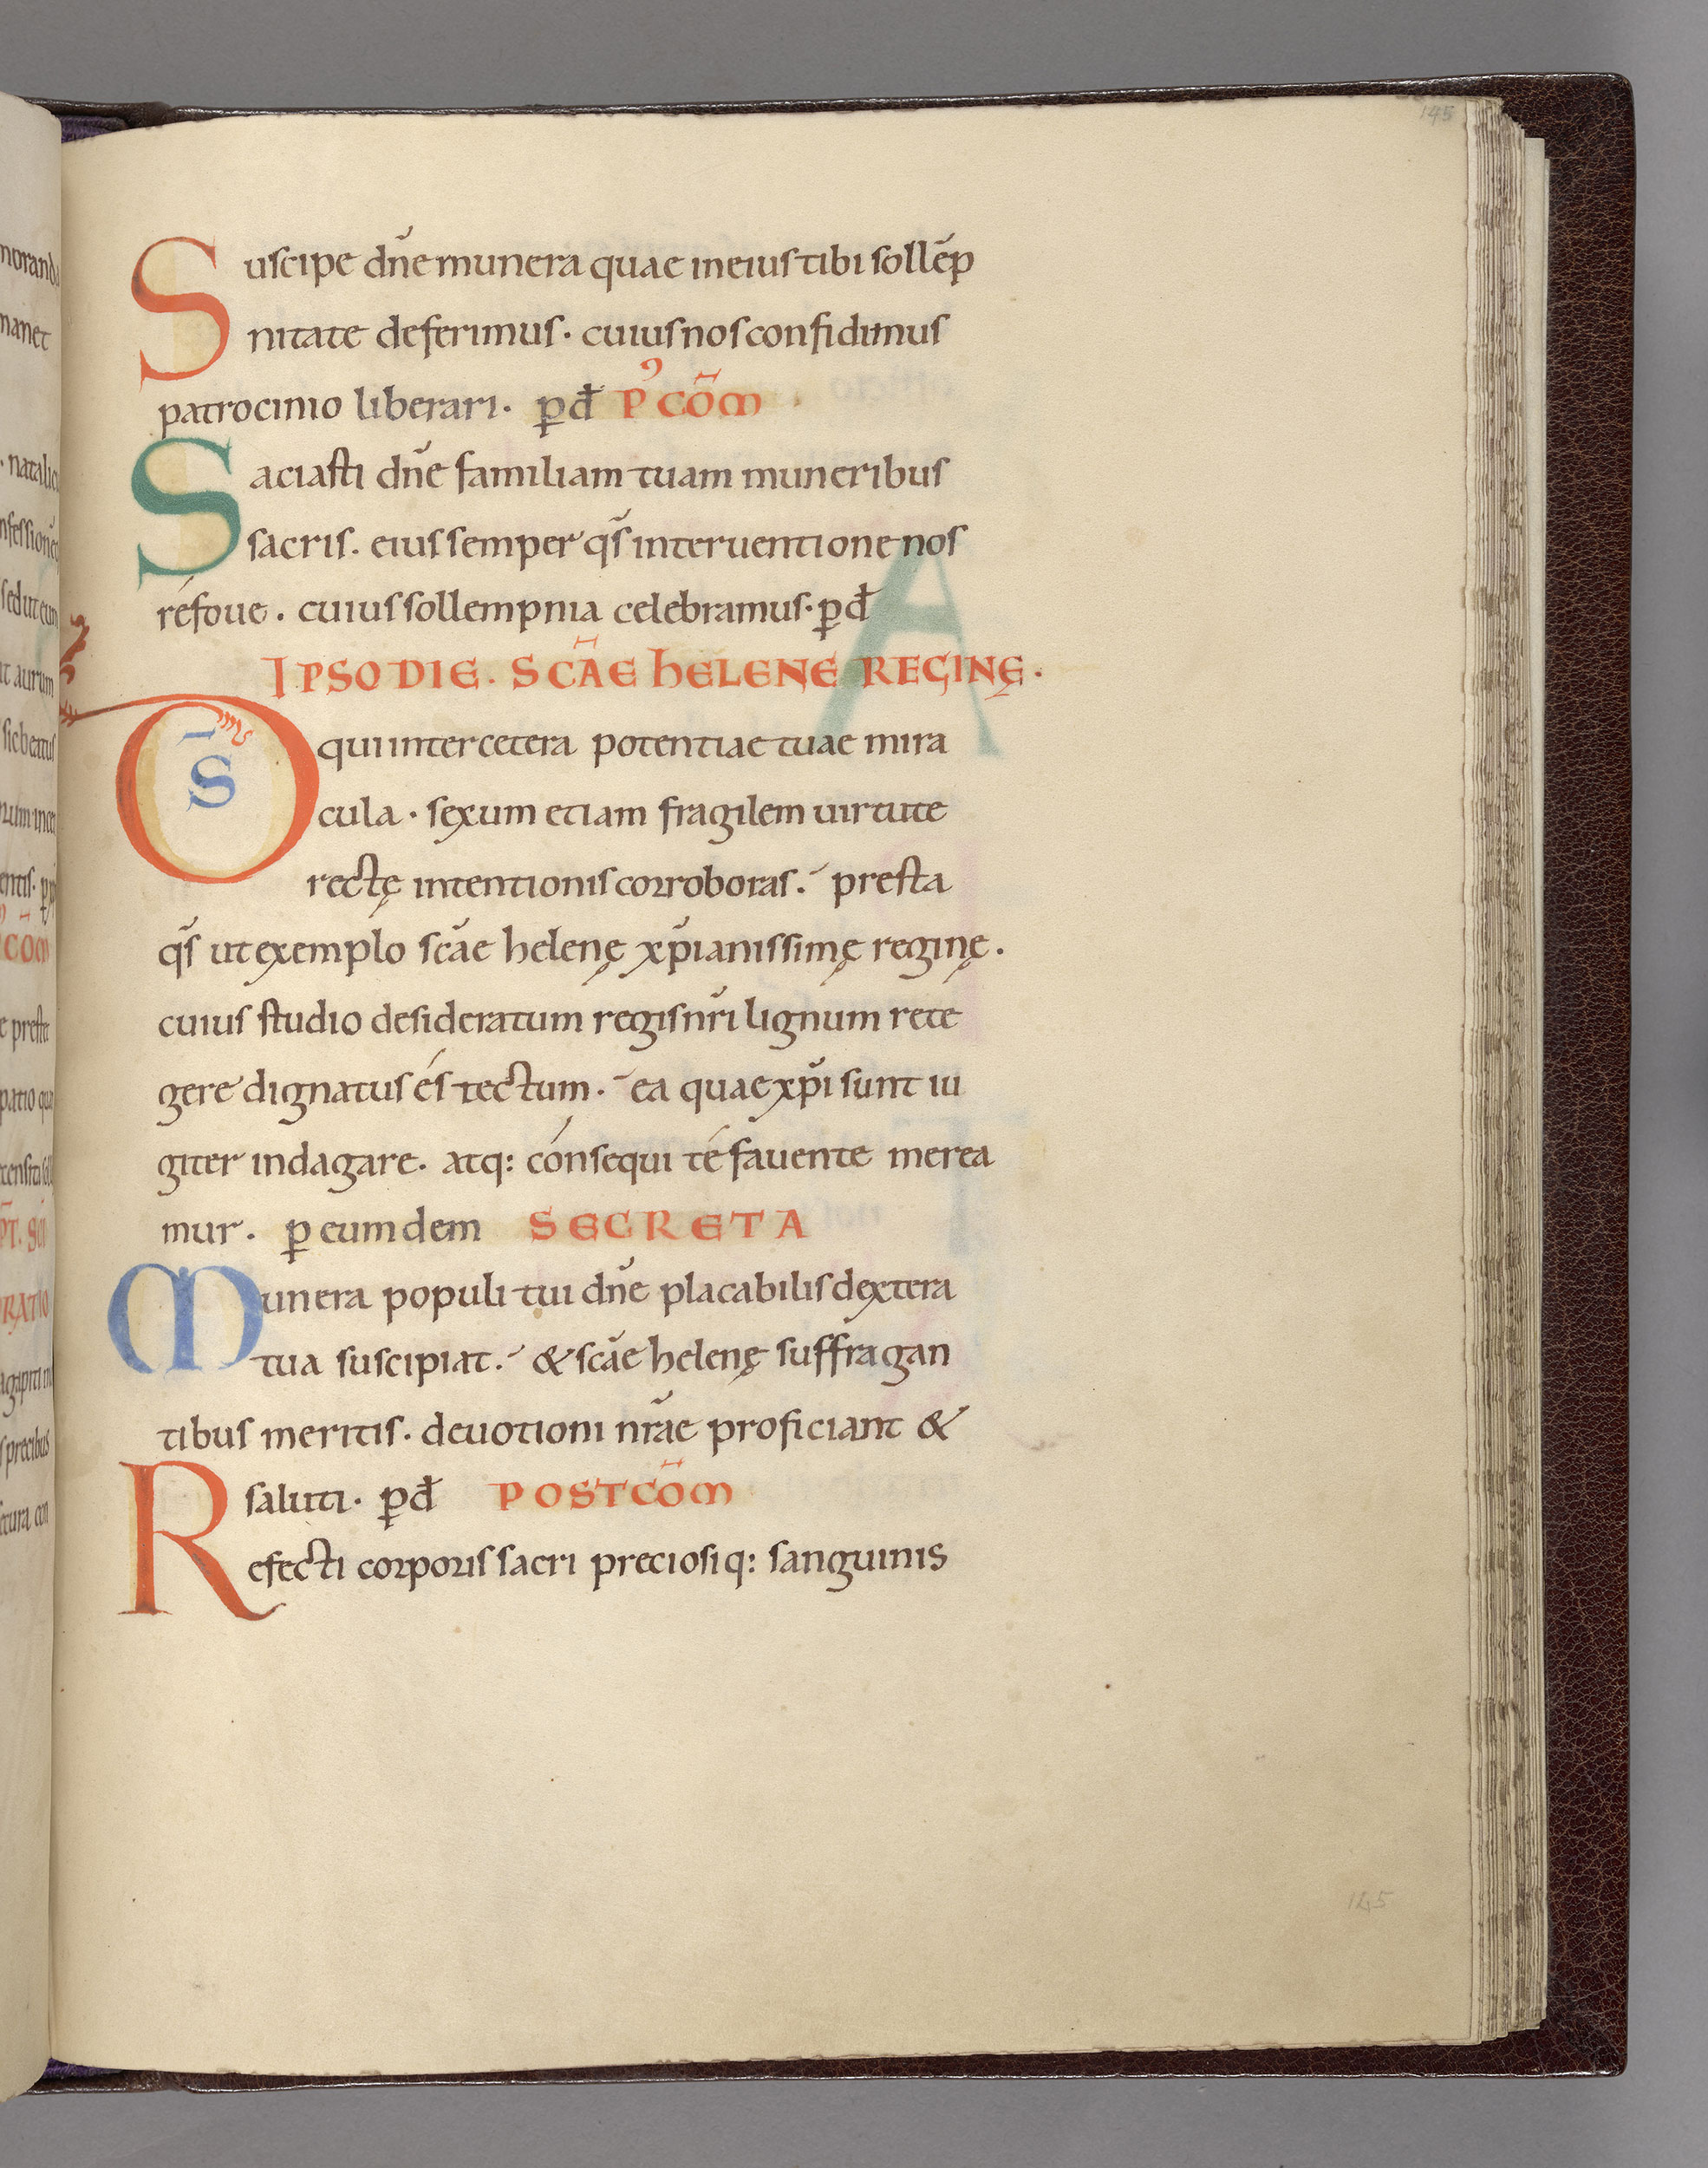 145
Suscipe dn̄e munera quae in eius tibi sollēp
nitate deferimus. cuius nos confidimus
patrocinio liberari. ꝑ đ P' COM̄
Saciasti dn̄e familiam tuam muneribus
sacris. eius semper qs̄ interuentione nos
réfoue. cuius sollempnia celebramus. ꝑ đ
IPSO DIE. SC̄AE HELENE REGINĘ.
Os̄ qui inter cetera potentiae tuae mira
cula. sexum etiam fragilem uirtute
rectę intentionis corroboras. presta
qs̄ ut exemplo sc̄ae helenę xp̄ianissimę reginę.
cuius studio desideratum regis nr̄i lignum rete
gere dignatus és tectum. ea quae xp̄i sunt iu
giter indagare. atq: cónsequi té fauente merea
mur. ꝑ eumdem SECRETA
Munera populi tui dn̄e placabilis dextera
tua suscipiat. & sc̄ae helenę suffragan
tibus meritis. deuotioni nr̄ae proficiant &
saluti. ꝑ đ POSTCOM̄
Refecti corporis sacri preciosiq: sanguinis
145